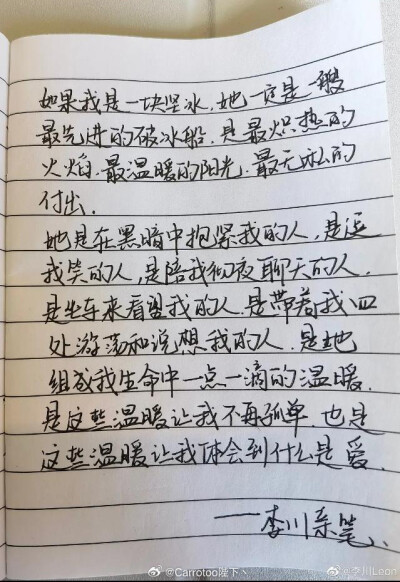 如果我是一块坚冰,她一定是一艘
最先进的破冰船,是最炽热的
火焰.最温暖的阳光.最无私的
付出.
她是在黑暗中抱紧我的人,是逗
我笑的人,是陪我彻夜聊天的人.
是坐车来看望我的人.是带着我四
处游荡和说想我的人.是她
组成我生命中一点一滴的温暖.
是这些温暖让我不再孤单.也是
这些温暖让我体会到什么是爱.
——李川亲笔
@Carrotoo陛下
@李川Leon